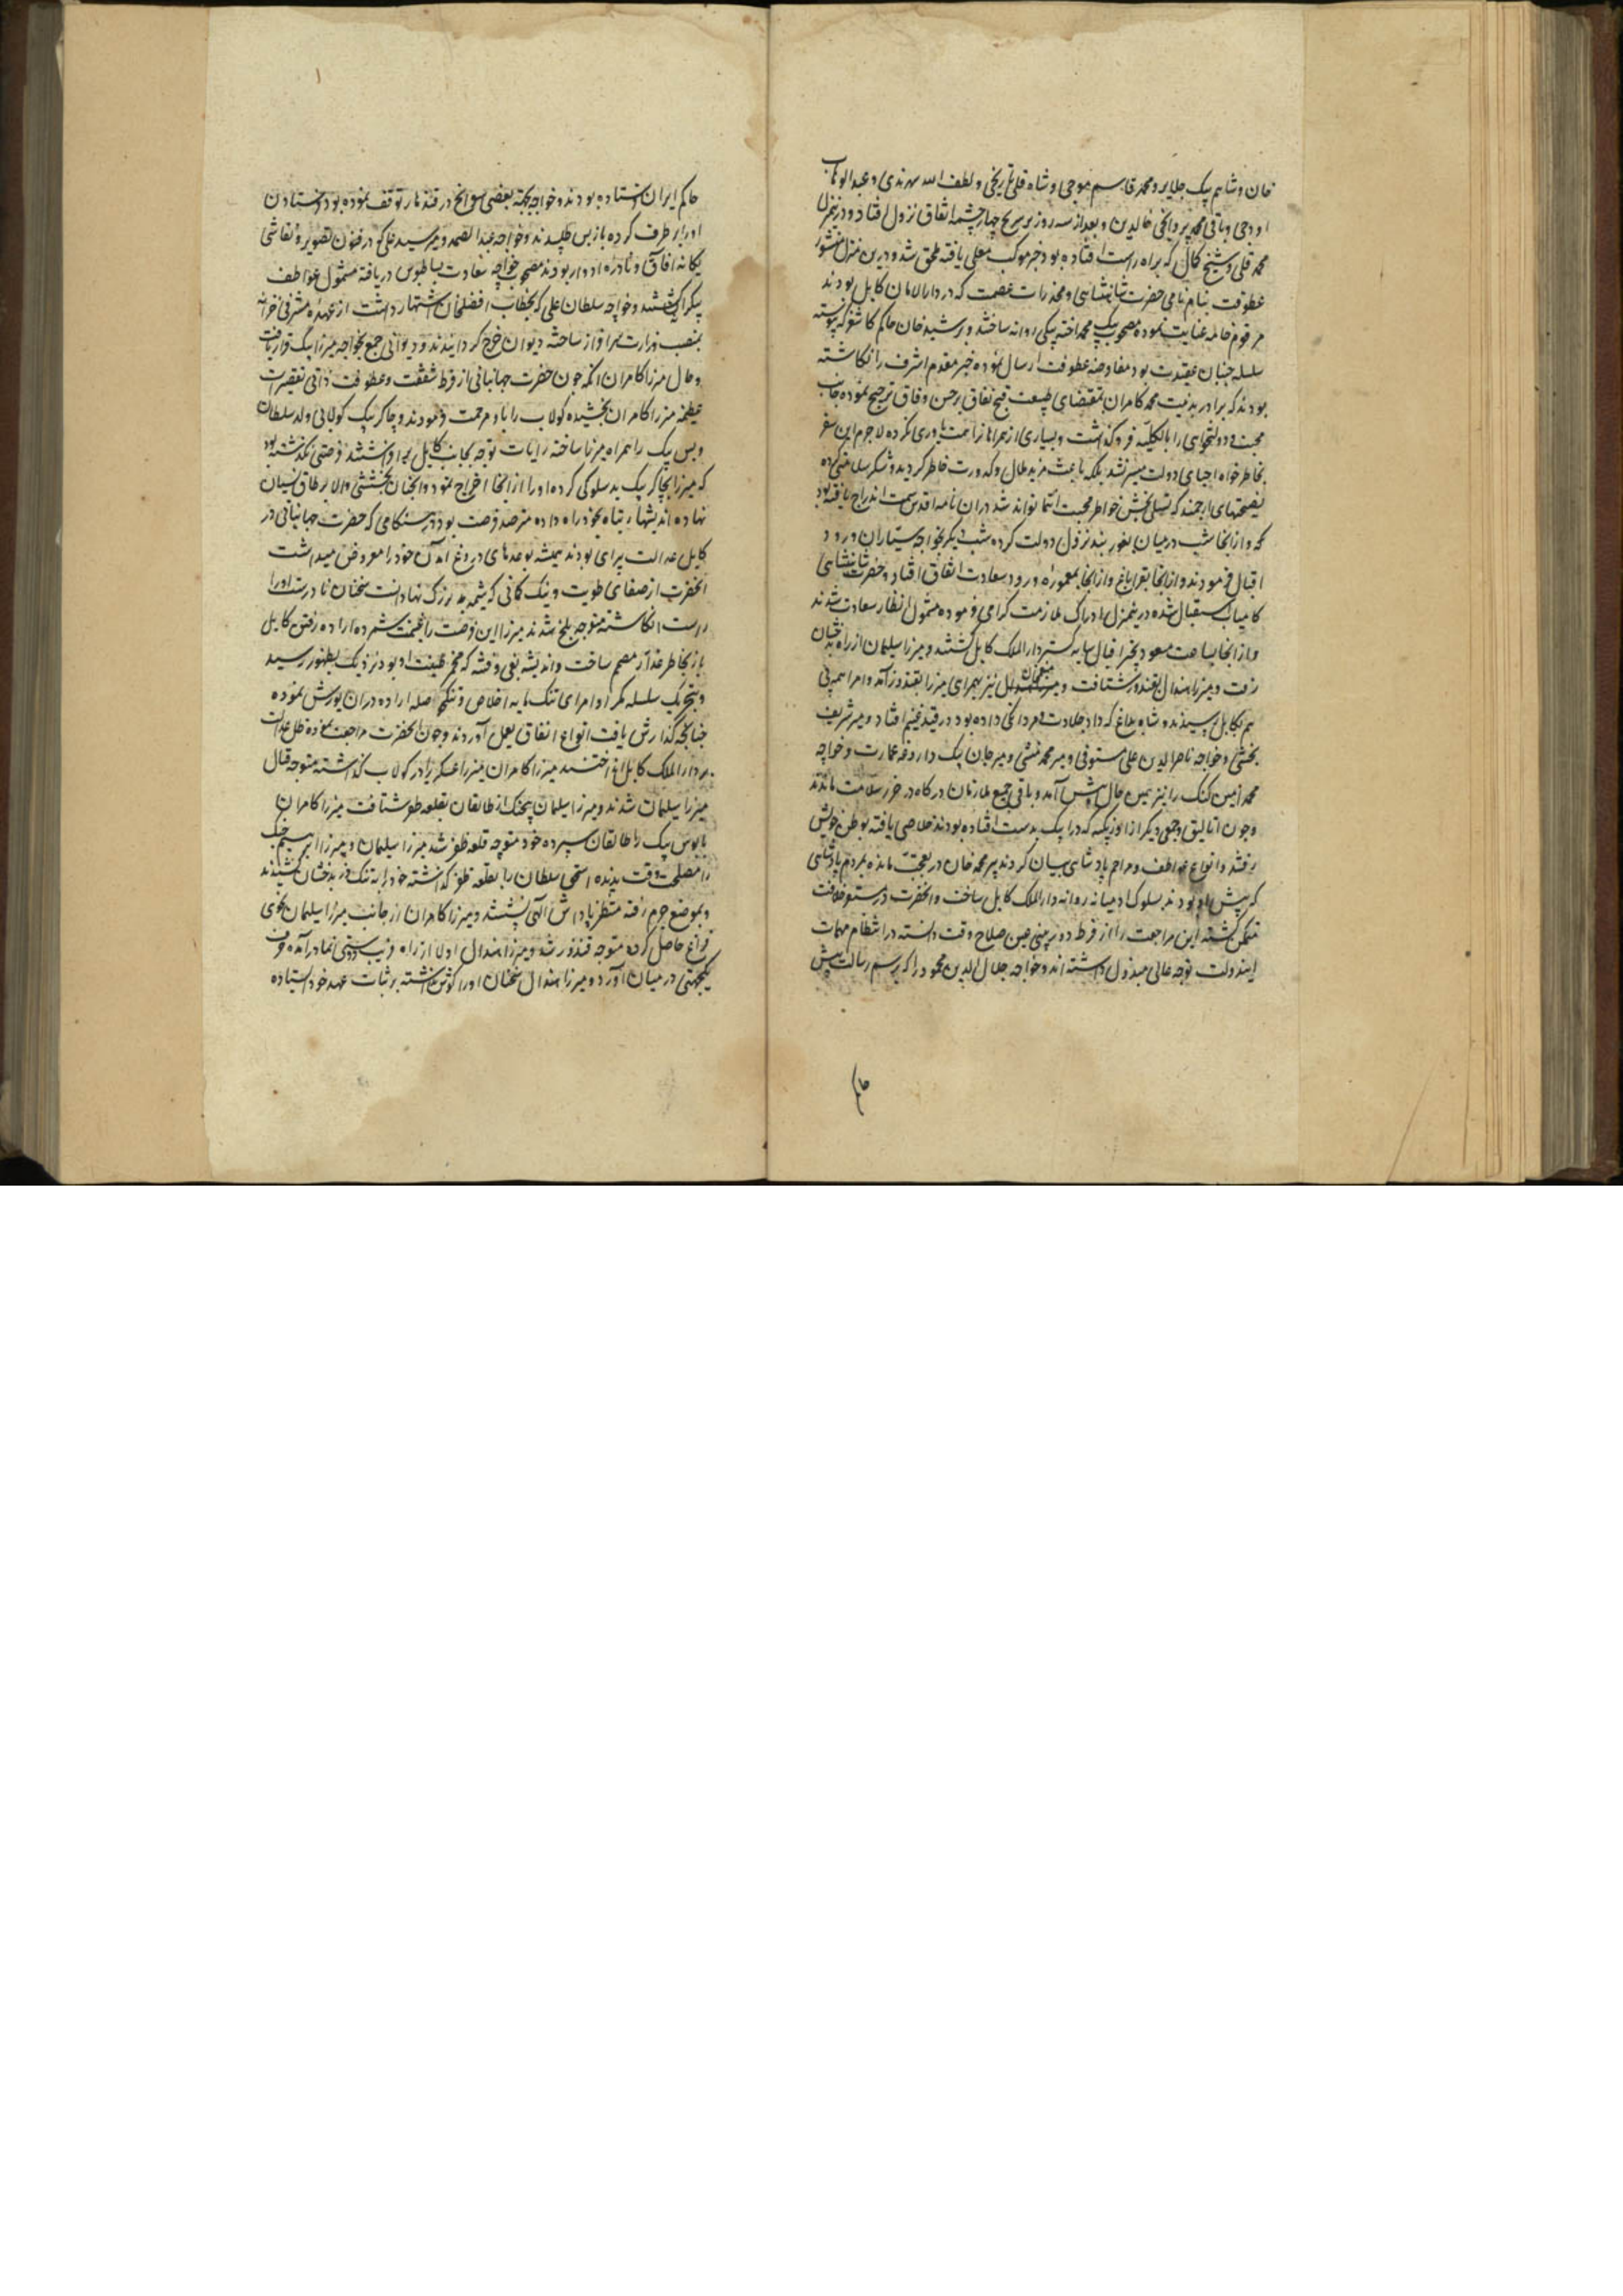 خان و شاهم بیک جلایر و محمد قاسم موجی و شاه قلی نارنجی و لطف الله سهرندی و عبدالوهاب
اودجی و باقی محمد پروانچی خالدین و بعد از سه روز بر سر پنج چهار چشمه اتفاق نزول افتاد و درین منزل
محمد قلی و شیخ کمال که براه راست افتاده بود خبر موکب معلی یافته ملحق شد و درین منزل منشور
عطوفت بنام نامی حضرت شاهنشاهی و مخدرات عصمت که در دارالامان کابل بودند
مرقوم خامه عنایت نموده مصحوب بیک محمد اخته بیکی روانه ساختند و برشید خان حاکم کاشغر که پیوسته
سلسله جنبان عقیدت بود مفاوضه عطوفت ارسال نموده خبر مقدم اشرف را نگاشته
بودند که برادر بدنیت محمد کامران بمقتضای طبیعت قبح نفاق بر حسن وفاق ترجیح نموده جانب
محبت و دولتخواهی را بالکلیه فرو گذاشت و بسیاری از همراهان را همت یاوری نکرده لاجرم این سفر
بخاطر خواه احبای دولت میسر نشد بلکه باعث مزید ملال و کدورت خاطر گردید و شکر سلامتی کرده
نصیحتهای ارجمند که تسلی بخش خواطر محبت انتما تواند شد دران نامه اقدس سمت اندراج یافته بود
که و از انجا شب درمیان بغوربند نزول دولت کرده شب دیگر بخواجه سیاران ورود
اقبال فرمودند و از انجا بقراباغ و از انجا بمعموره ورود سعادت اتفاق افتاد و حضرت شاهنشاهی
کامیاب استقبال شده درینمنزل ادراک ملازمت گرامی فرموده مشمول انظار سعادت شدند
و از انجا بساعت مسعود پختر اقبال سایه گستر دارالملک کابل گشتند و میرزا سلیمان از راه بدخشان
رفت و میرزا هندال بقندوز شتافت و منعم خان نیز بهمراهی میرزا بقندوز آمد و امرا همه پی
هم بکابل رسیدند و شاه بداغ که داد جلادت و مردانگی داده بود در قید غنیم افتاد و میر شریف
بخشی و خواجه ناصرالدین علی مستوفی و میر محمد منشی و میر جان بیک داروغه عمارت و خواجه
محمد امین کنک را نیز همین حال پیش آمد و باقی جمیع ملازمان درگاه در حرز سلامت ماندند
و چون اتالیق و جمعی دیگر از اوزبکیه که در ایبک بدست افتاده بودند خلاصی یافته بوطن خویش
رفتند و انواع عواطف و مراحم پادشاهی بیان کردند پیر محمد خان در تعجب مانده بمردم پادشاهی
که پیش او بودند سلوک آدمیانه روانه دارالملک کابل ساخت و انحضرت در مستقر خلافت
متمکن گشته این مراجعت را از فرط دوربینی عین صلاح وقت دانسته در انتظام مهمات
ایندولت توجه عالی مبذول داشته اند و خواجه جلال الدین محمود را که برسم رسالت پیش
حاکم
حاکم ایران فرستاده بودند و خواجه بجهة بعضی سوانح در قندهار توقف نموده بود فرستادن
او را بر طرف کرده باز پس طلبیدند و خواجه عبدالصمد و میر سید علی که در فنون تصویر و نقاشی
یگانه آفاق و نادره ادوار بودند مصحوب خواجه سعادت بساطبوس دریافته مشمول عواطف
بیکران گشتند و خواجه سلطان علی که بخطاب افضلخان اشتهار داشت از عهده مشرفی خزانه
بمنصب وزارت سرافراز ساخته دیوان خرج گردانیدند و دیوانی جمع بخواجه میرزا بیک قرار یافت
و حال میرزا کامران آنکه چون حضرت جهانبانی از فرط شفقت و عطوفت ذاتی تقصیرات
عظیمه میرزا کامران بخشیده کولاب را باو مرحمت فرمودند و چاکر بیک کولابی ولد سلطان
ویس بیک را همراه میرزا ساخته رایات توجه بجانب کابل برافراشتند فرصتی نگذشته بود
که میرزا بچاکر بیک بدسلوکی کرده او را از انجا اخراج نمود و انچنان بخششی والا بر طاق نسیان
نهاده اندیشهاء تباه بخود راه داده مترصد فرصت بود و در هنگامی که حضرت جهانبانی در
کابل عدالت پیرای بودند همیشه بوعدهای دروغ آمدن خود را معروض میداشت
انحضرت از صفای طویت و نیک گمانی که شیمه بزرگ نهادانست سخنان نادرست او را
راست انگاشته متوجه بلخ شدند میرزا این فرصت را غنیمت شمرده اراده رفتن کابل
باز بخاطر غدار مصمم ساخت و اندیشه بغی و فتنه که مخمر طینت او بود نزدیک بظهور رسید
و بتحریک سلسله مکر او امرای تنک مایه اخلاص و تنگ حوصله اراده دران یورش نموده
چنانچه گذارش یافت انواع نفاق بعمل آوردند و چون انحضرت مراجعت نموده ظل عدالت
بر دارالملک کابل انداختند میرزا کامران میرزا عسکری را در کولاب گذاشته متوجه قتال
میرزا سلیمان شدند و میرزا سلیمان بیجنگ از طالقان بقلعه ظفر شتافت میرزا کامران
بابوس بیک را طالقان سپرده خود متوجه قلعه ظفر شد میرزا سلیمان و میرزا ابراهیم جنگ
را مصلحت وقت ندیده اسحق سلطان را بقلعه ظفر گذاشته خود را به تنگ در بدخشان کشیدند
و بموضع جرم رفته منتظر پاداش الهی نشستند و میرزا کامران از جانب میرزا سلیمان بنحوی
فراغ حاصل کرده متوجه قندوز شد و میرزا هندال اولا از راه فریب دوستی نما درآمده حرف
یکجهتی درمیان آورد و میرزا هندال سخنان او را گوش نداشته بر ثبات عهد خود ایستاده